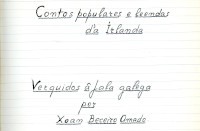 Contos populares e lendas
da Irlanda
Verquidos â fala galega
por
Xoan Beceiro Amado